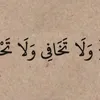 وَلَا تَخَافِي وَلَا